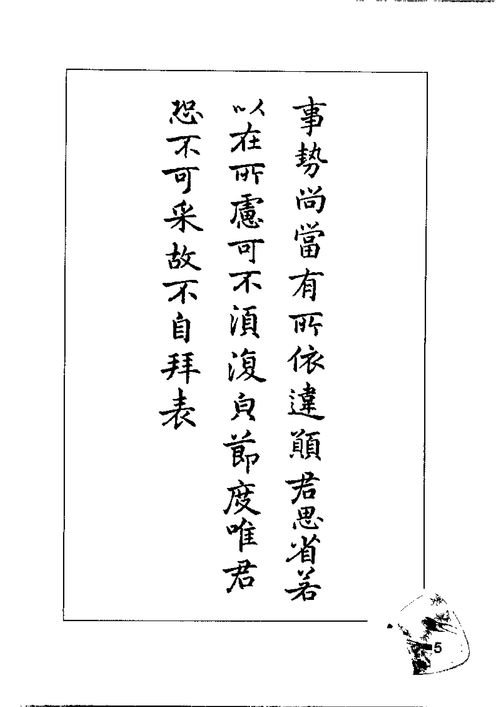 事勢尚當有所依違願君思省若
以在所慮可不湏復皃節度唯君
恐不可采故不自拜表
5